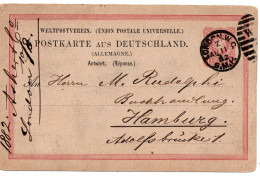 WELTPOSTVEREIN. (UNION POSTALE UNIVERSELLE.)
POSTKARTE AUS DEUTSCHLAND.
(ALLEMAGNE.)
Antwort. (Réponse.)
LONDON W.C.
82
An Herrn M. Rudolphi
Buchhandlung
Hamburg.
Adolfsbrücke
1882
London